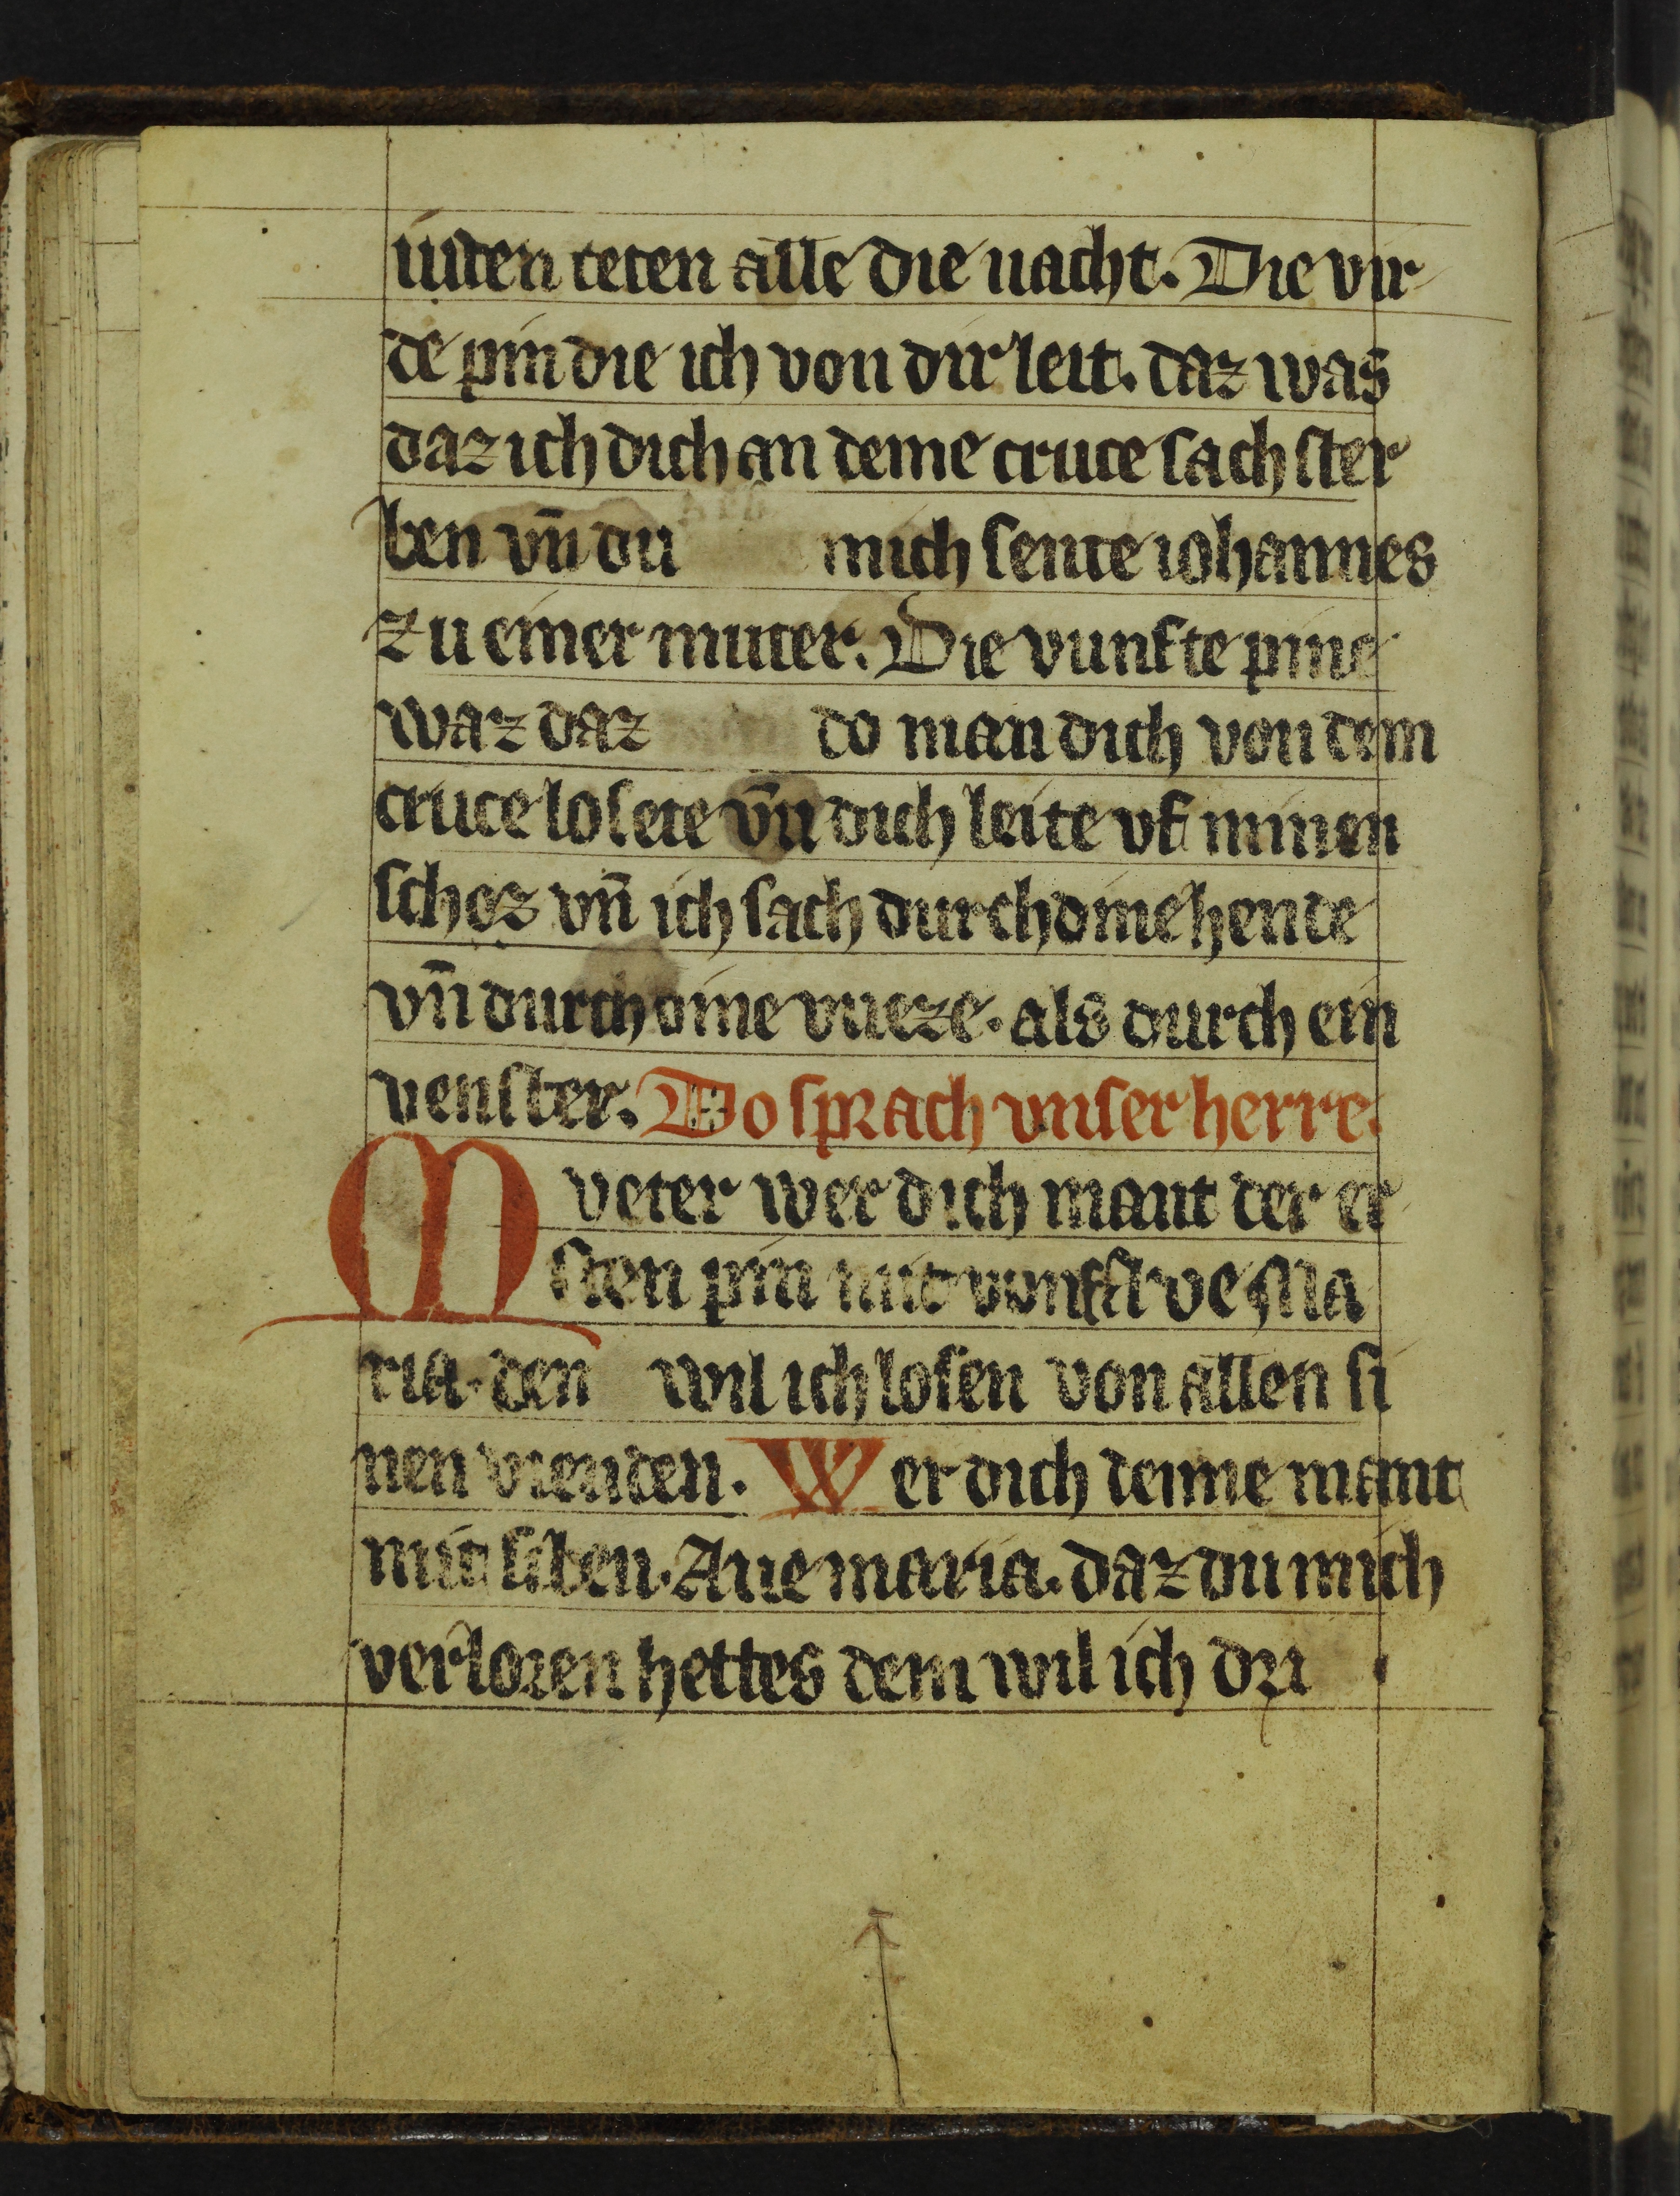 iuden teten alle die nacht. Die vir
de pin die ich von dir leit. daz was
daz ich dich an deme cruce sach ster
ben vn̄ du mich sente iohannes
zu einer muter. Die vunfte pine
waz daz do man dich von dem
cruce losete vn̄ dich leite vf minen
schoz vn̄ ich sach durch dine hende
vn̄ durch dine vueze. als durch ein
venster. Do sprach vnser herre.
Mveter wer dich mant der er
sten pin mit vunf Ave Ma
ria. den wil ich losen von allen si
nen vienden. Wer dich denne mant
mit siben. Aue maria. daz du mich
verloren hettes dem wil ich dri